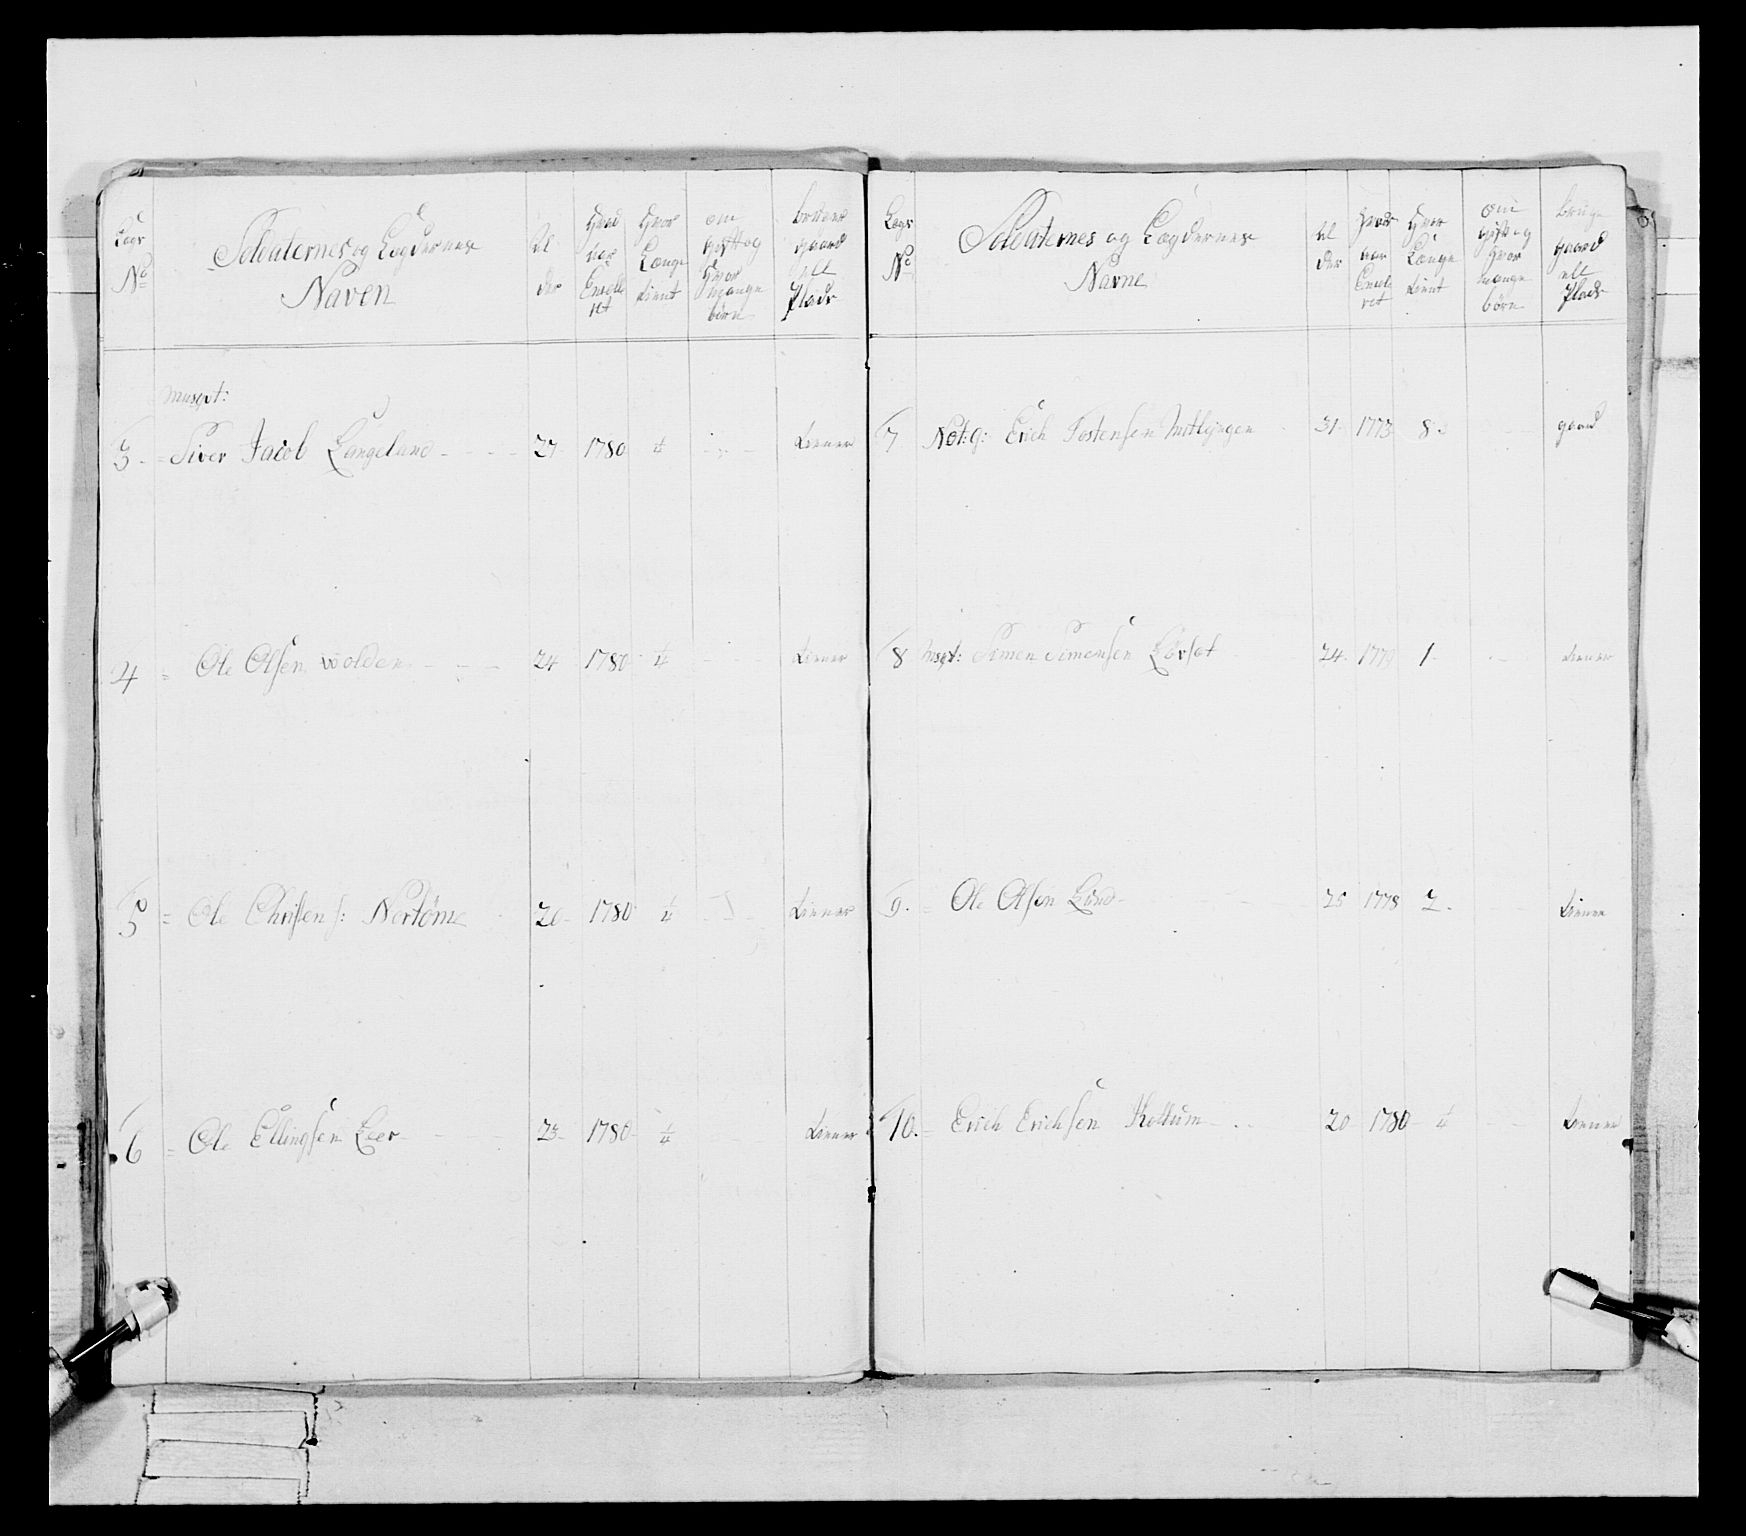 Lægs No
Soldaternes og Lægdernes Naven
Al der
Hvad aar Enrolleret
Hvor Længe tient
om gift og Hvor mange børn
bruger gaard ell Plads
musqt:
3. = Siver Jacob Langeland 27 1780 ¼ Tiener
4 = Ole Olsen wolden 24 1780 ¼ Tiener
5 = Ole Christen s: Nertøme 20 1780 ¼ Tiener
6 = Ole Ellingsen Leer 23 1780 ¼ Tiener
Lægs No
Soldaternes og Lægdernes Navne
Al der
Hvad aar Enrolleret
Hvor Længe tient
om gift og Hvor mange børn
bruger gaard ell Plads
7 Not:g: Erich Tostensen 31 1773 8 gaard
8 Msqt: Simen Simensen Lørset 24 1779 1 Tiener
9. = Ole Olsen Lund 25 1778 2. Tiener
10. = Erich Erichsen Kollum 20 1780 ¼ Tiener